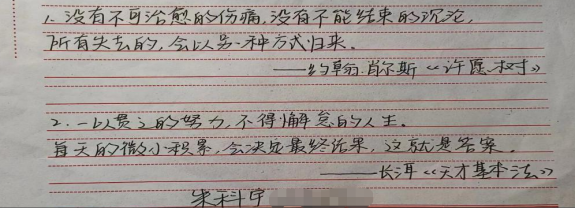 1. 没有不可治愈的伤痛,没有不能结束的沉沦,
所有失去的,会以另一种方式归来.
——约翰.肖尔斯《许愿树》
2. 一以贯之的努力,不得懈怠的人生.
每天的微小积累,会决定最终结果,这就是答案.
——长洱《天才基本法》
朱科宁